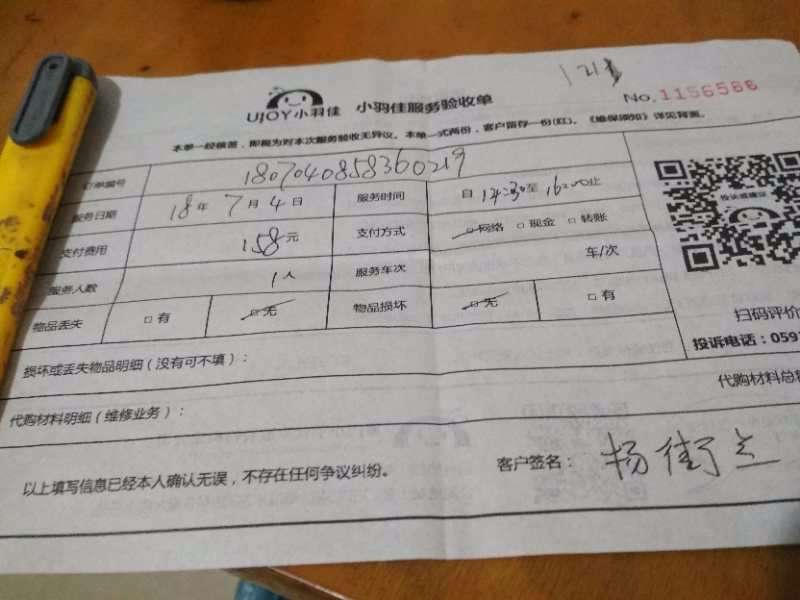 UJOY小羽佳 小羽佳服务验收单
No.1156566
本单一经核签，即视为对本次服务验收无异议。本单一式两份，客户留存一份(红)。《维保须知》详见背面。
订单编号 1807040858360219
服务日期 18年7月4日 服务时间 自14:30至16:00止
支付费用 158元 支付方式 网络 现金 转账
服务人数 1人 服务车次 车/次
物品丢失 有 无 物品损坏 无 有
投诉或建议
扫码评价
投诉电话：059
损坏或丢失物品明细（没有可不填）：
代购材料明细（维修业务）： 代购材料总
以上填写信息已经本人确认无误，不存在任何争议纠纷。 客户签名：杨街立